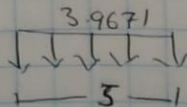 3.9671
5